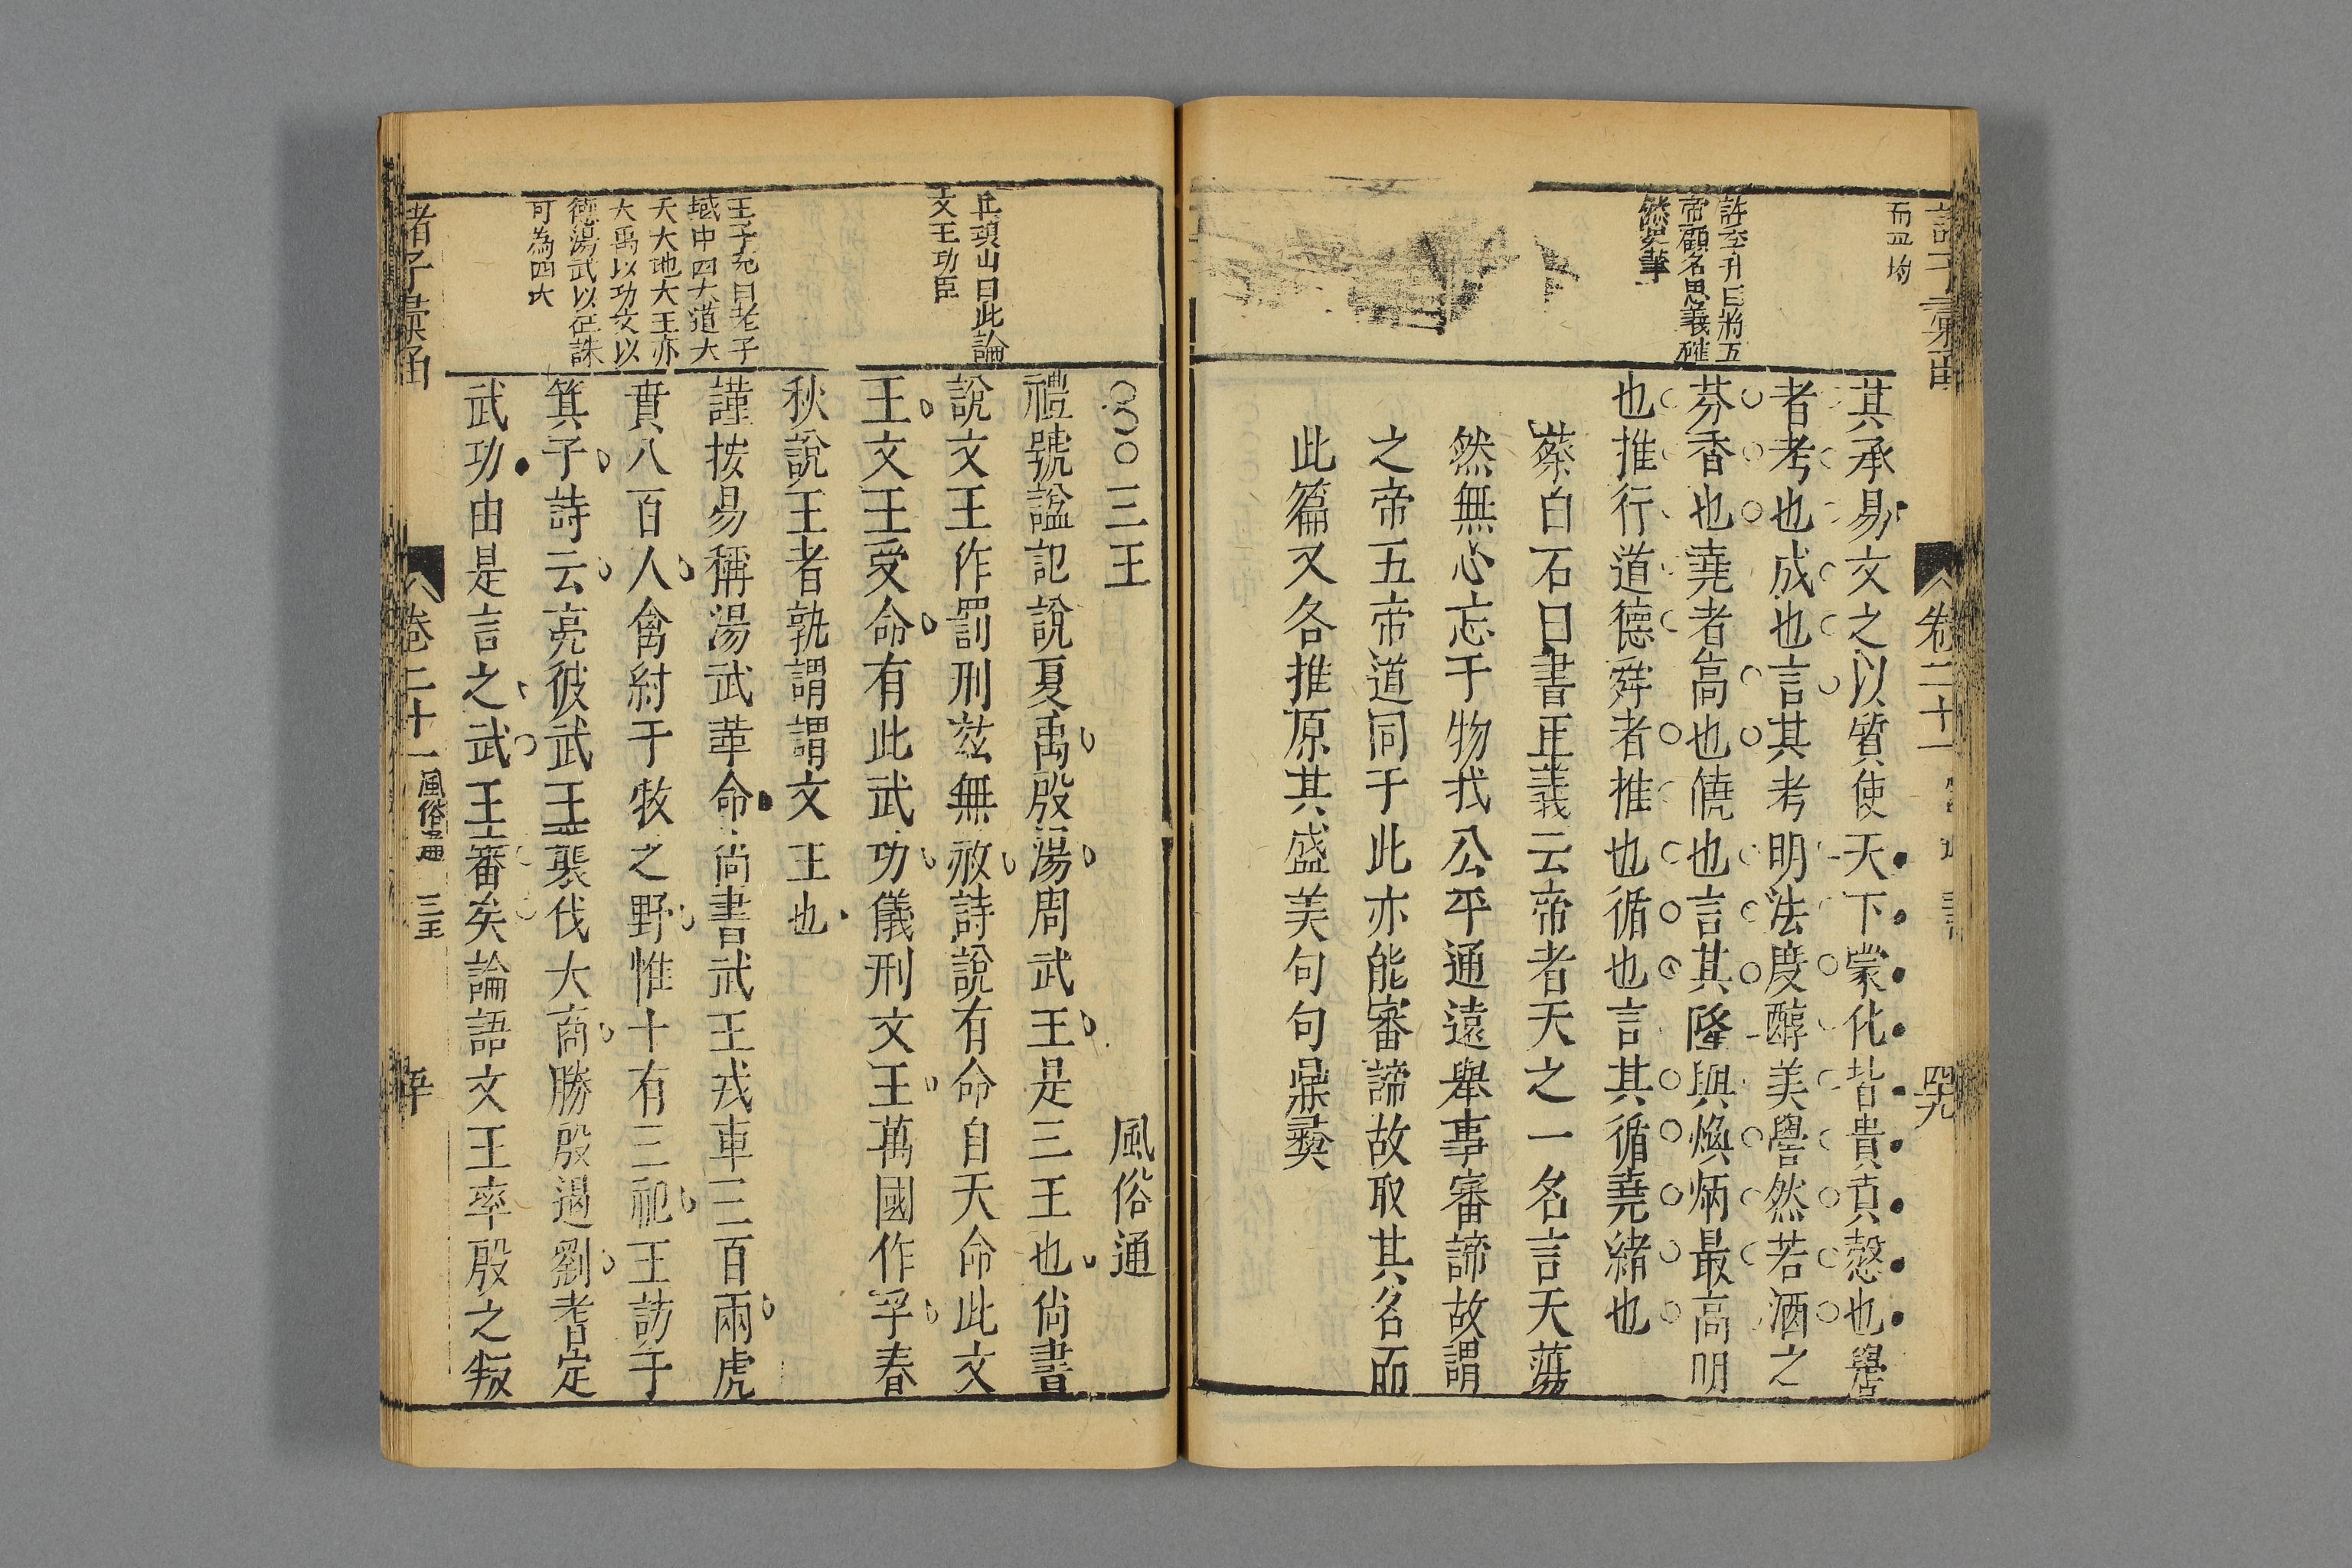 而四均
許至升曰將五
帝顧名思義確
然史華
其承易文之以質使天下蒙化皆貴貞慤也嚳
者考也成也言其考明法度醇美嚳然若酒之
芬香也堯者高也饒也言其隆興煥炳最高明
也推行道德舜者推也循也言其循堯緒也
蔡白石曰書正義云帝者天之一名言天蕩
然無心忘于物我公平通遠舉事審諦故謂
之帝五帝道同于此亦能審諦故取其名而
此篇又各推原其盛美句句鼎彞
卷二十一
四九
丘瓊山曰此論
文王功臣
王子充曰老子
域中四大道大
天大地大王亦
大禹以功文以
德湯武以征誅
可為四大
三王 風俗通
禮號謚記說夏禹殷湯周武王是三王也尚書
說文王作罰刑兹無赦詩說有命自天命此文
王文王受命有此武功儀刑文王萬國作孚春
秋說王者孰謂謂文王也
謹按易稱湯武革命尚書武王戎車三百兩虎
賁八百人禽紂于牧之野惟十有三祀王訪于
箕子詩云亮彼武王襲伐大商勝殷遏劉耆定
武功由是言之武王審矣論語文王率殷之叛
諸子彙函
卷二十一
風俗通 三王
五十